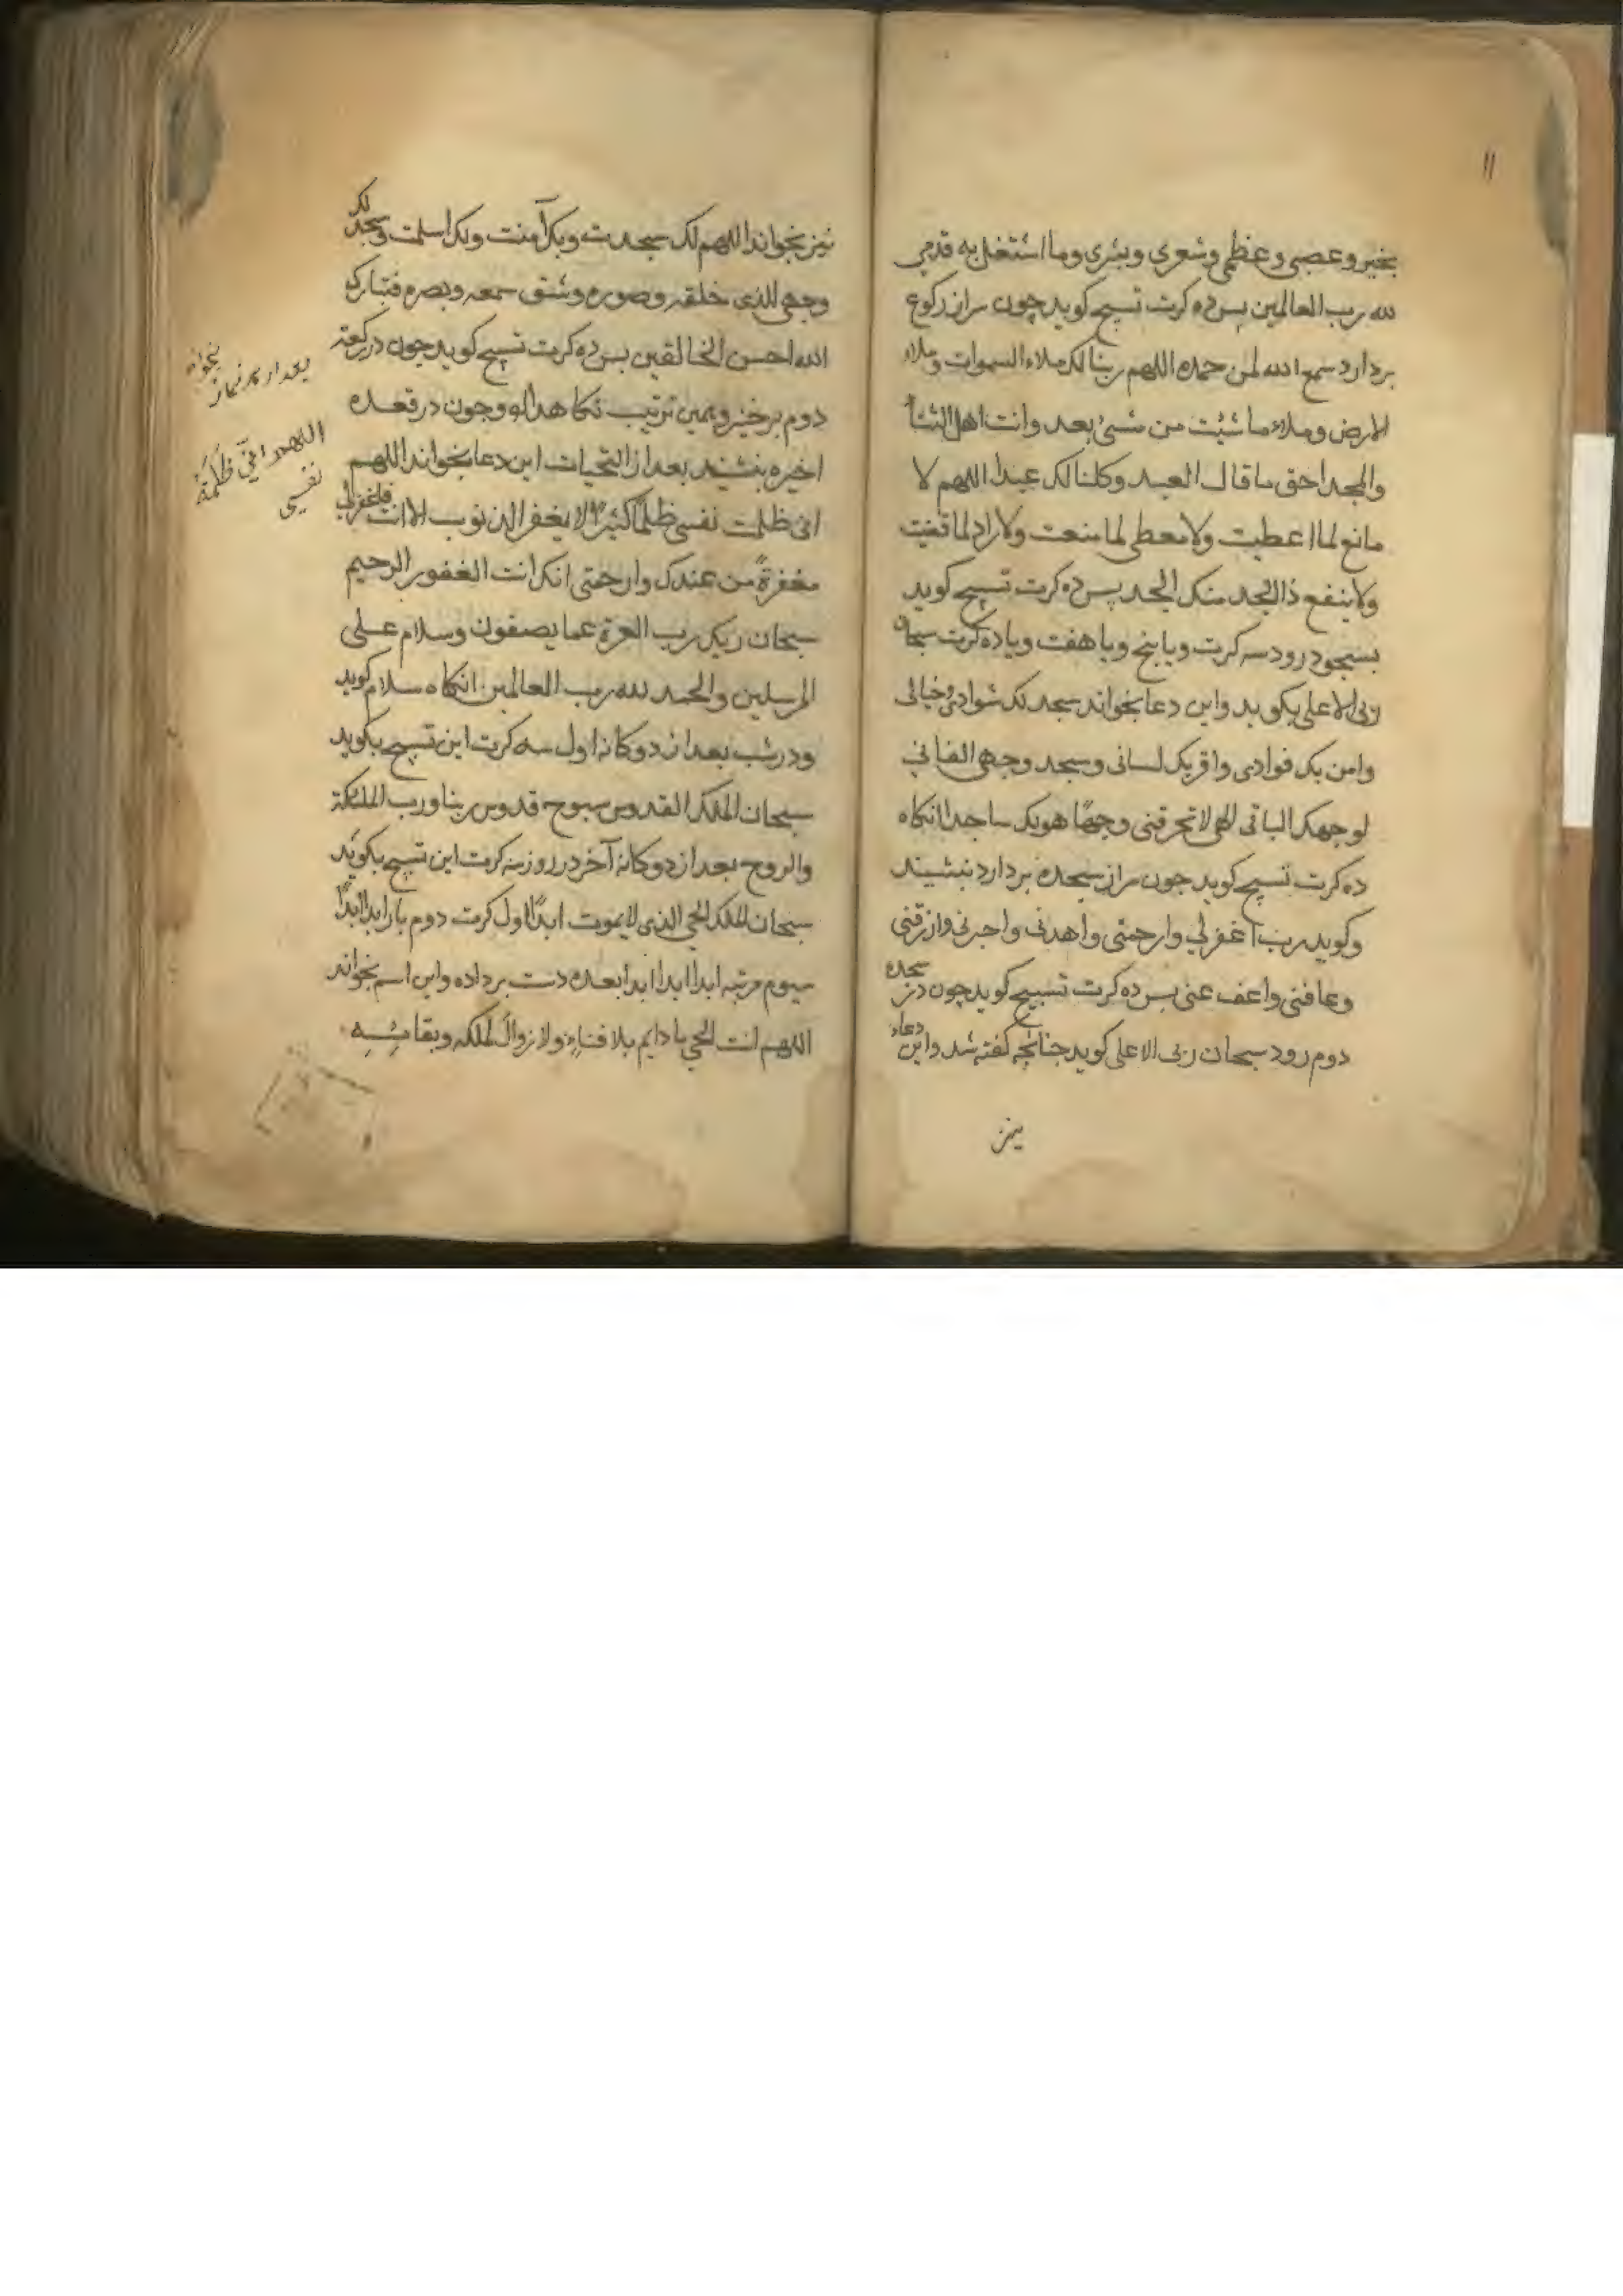 ۱۱
بخیر و عصبی و عظمی و شعری و بشری و ما اشتغل به قدمی
لله رب العالمین پس ده کرت تسبیح کوید چون سر از رکوع
بردارد سمع الله لمن حمده اللهم ربنا لک ملاء السموات و ملاء
الارض و ملاء ما شئت من شیئ بعد و انت اهل الثناء
والمجد احق ما قال العبد و کلنا لک عبدا اللهم لا
مانع لما اعطیت ولا معطی لما منعت ولا راد لما قضیت
ولا ینفع ذا الجد منک الجد پس ده کرت تسبیح کوید
بسجود رود سه کرت و یا پنج و یا هفت و یا ده کرت سبحان
ربی الاعلی بکوید و این دعا بخواند سجد لک سوادی و خیالی
وامن بک فوادی واقر بک لسانی وسجد وجهی الفانی
لوجهک الباقی الهی لا تحرقنی وجها هو لک ساجدا انکاه
ده کرت تسبیح کوید جون سر از سجده بردارد بنشیند
و کوید رب اغفرلی وارحمنی واهدنی واجبرنی وارزقنی
وعافنی واعف عنی پس ده کرت تسبیح کوید چون در سجده
دوم رود سبحان ربی الاعلی کوید جنانچه کفته شد و این دعاء
نیز
نیز بخواند اللهم لک سجدت وبک آمنت ولک اسلمت وسجد لک
وجهی للذی خلقه وصوره وشق سمعه وبصره فتبارک
الله احسن الخالقین پس ده کرت تسبیح کوید چون در رکعت
دوم برخیزد همین ترتیب نکاهدارد و جون در قعده
اخیره بنشیند بعد از التحیات این دعا بخواند اللهم
انی ظلمت نفسی ظلما کثیرا ولا یغفر الذنوب الا انت فاغفرلی
مغفرة من عندک وارحمنی انک انت الغفور الرحیم
سبحان ربک رب العزة عما یصفون وسلام علی
المرسلین والحمد لله رب العالمین انکاه سلام کوید
ودر شب بعد از دوکانه اول سه کرت این تسبیح بکوید
سبحان الملک القدوس سبوح قدوس ربنا ورب الملئکة
والروح بعد از دوکانه آخر در روز سه کرت این تسبیح بکوید
سبحان الملک الحی الذی لا یموت ابدا اول کرت دوم بار ابدا ابدا
سیوم مرتبه ابدا ابدا ابدا بعده دست برداده و این اسم بخواند
اللهم انت الحی یا دایم بلا فناء ولا زوال لملکه وبقائه
بعد از هر نماز بخواند
اللهم انی ظلمة
نفسی